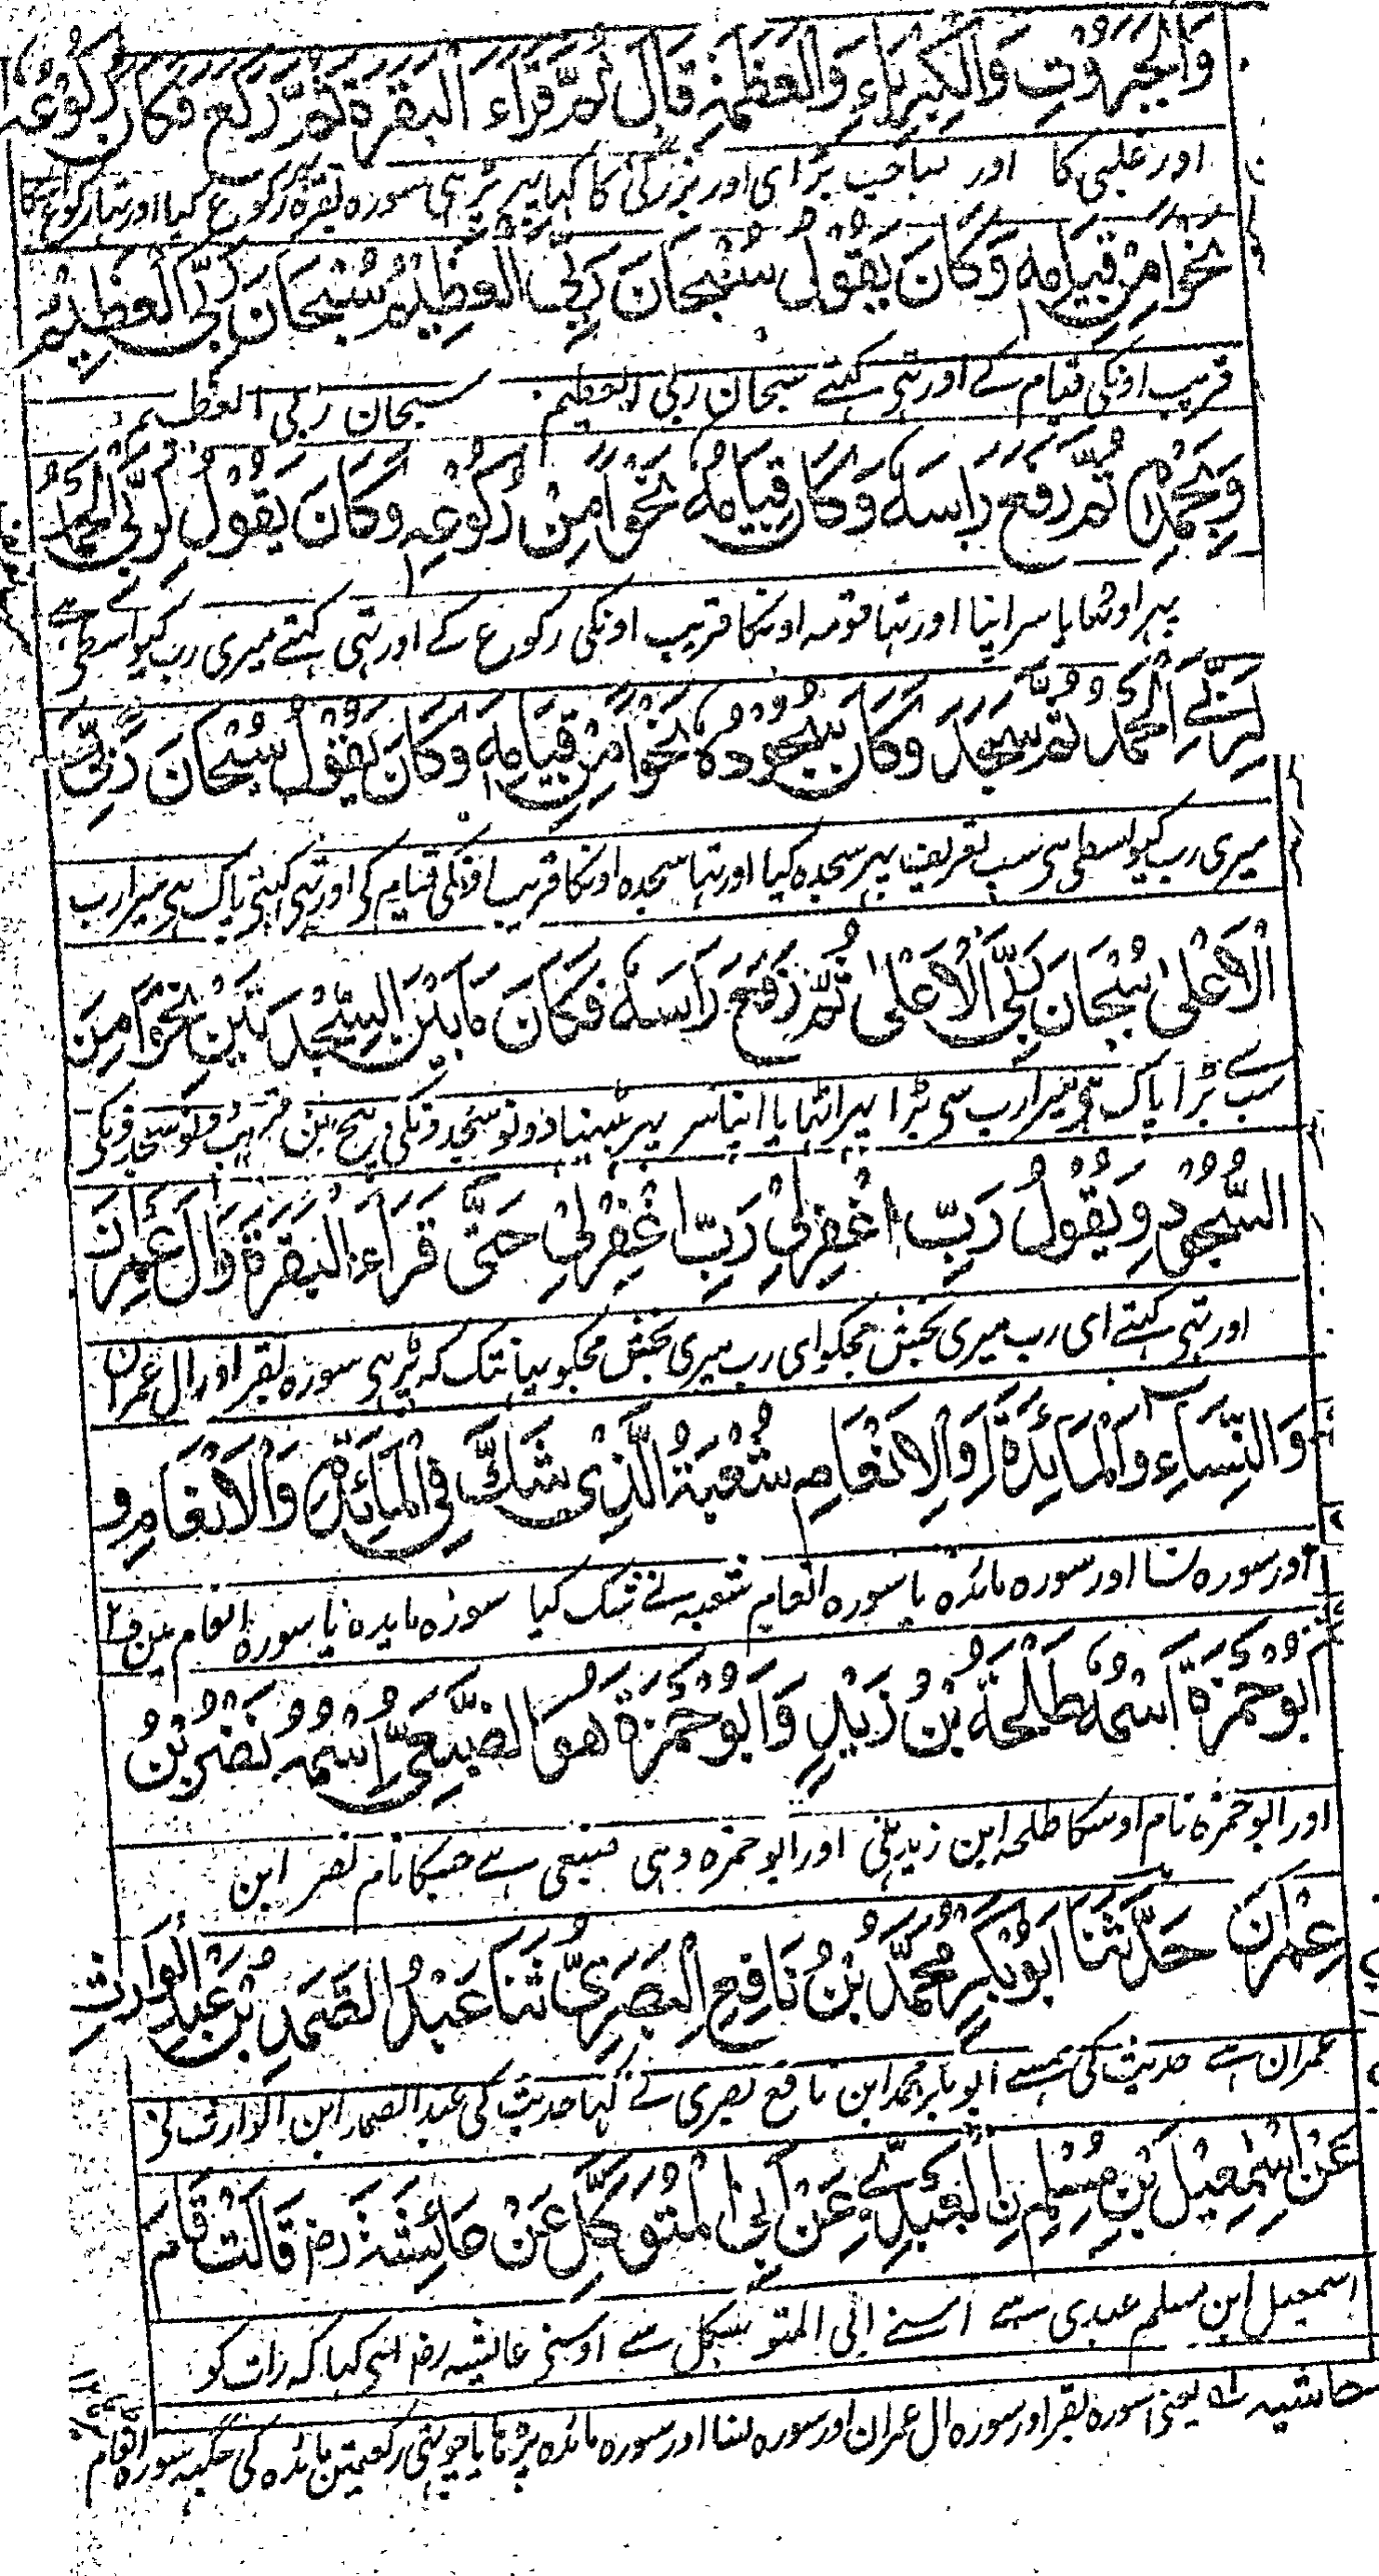 وَالْجَبَرُوْتِ وَالْكِبْرِيَاءِ وَالْعَظَمَةِ قَالَ ثُمَّ قَرَاءَ الْبَقَرَةَ ثُمَّ رَكَعَ فَكَانَ رُكُوْعُهٗ
اور غلبی کا اور صاحب بڑای اور بزرگی کا کہا پہر پڑہی سورہ بقرہ پہر رکوع کیا اور تہا رکوع اونکا
نَحْوًا مِّنْ قِيَامِهٖ وَكَانَ يَقُوْلُ سُبْحَانَ رَبِّيَ الْعَظِيْمِ سُبْحَانَ رَبِّيَ الْعَظِيْمِ
قریب اونکی قیام کے اور تہی کہتے سبحان ربی العظیم سبحان ربی العظیم
وَبِحَمْدِهٖ ثُمَّ رَفَعَ رَاسَهٗ وَكَانَ قِيَامُهٗ نَحْوًا مِّنْ رُكُوْعِهٖ وَكَانَ يَقُوْلُ لِرَبِّيَ الْحَمْدُ
پہر اوٹھایا سر اپنا اور تہا قومہ اونکا قریب اونکی رکوع کے اور تہی کہتے میری رب کیواسطی ہے
لِرَبِّيَ الْحَمْدُ ثُمَّ سَجَدَ وَكَانَ سُجُوْدُهٗ نَحْوًا مِّنْ قِيَامِهٖ وَكَانَ يَقُوْلُ سُبْحَانَ رَبِّيَ
میری رب کیواسطی ہی سب تعریف پہر سجدہ کیا اور تہا سجدہ اونکا قریب اونکی قیام کی اور تہی کہتی پاک ہی میرا رب
الْاَعْلٰى سُبْحَانَ رَبِّيَ الْاَعْلٰى ثُمَّ رَفَعَ رَاسَهٗ فَكَانَ مَا بَيْنَ السَّجْدَتَيْنِ نَحْوًا مِّنَ
سب سے بڑا پاک ہی میرا رب سی بڑا پہر اٹہایا اپنا سر پہر بیٹہنا دونو سجدونکی بیچ میں قریب دونو سجدونکی
السُّجُوْدِ وَيَقُوْلُ رَبِّ اغْفِرْلِيْ رَبِّ اغْفِرْلِيْ حَتّٰى قَرَاءَ الْبَقَرَةَ وَاٰلَ عِمْرَانَ
اور تہی کہتے ای رب میری بخش مجکو ای رب میری بخش مجکو یہانتک کہ پڑہی سورہ بقر اور ال عمران
وَالنِّسَاءِ وَالْمَائِدَةَ اَوِ الْاَنْعَامِ شُعْبَةُ الَّذِيْ شَكَّ فِي الْمَائِدَةِ وَالْاَنْعَامِ وَ
اور سورہ نسا اور سورہ مائدہ یا سورہ انعام شعبہ نے شک کیا سورہ مایدہ یا سورہ انعام مین ف
اَبُوْ حَمْزَةَ اسْمُهٗ طَلْحَةُ بْنُ زَيْدٍ وَاَبُوْ حَمْزَةَ هُوَ الضَّبِيْعِيُّ اسْمُهٗ نَضْرُ بْنُ
اور ابو حمزہ نام اوسکا طلحہ ابن زید ہی اور ابو حمزہ وہی ضبیعی ہے جسکا نام نصر ابن
عِمْرَانَ حَدَّثَنَا اَبُوْ بَكْرٍ مُحَمَّدُ بْنُ نَافِعٍ الْبَصَرِيُّ ثَنَا عَبْدُ الصَّمَدِ بْنُ عَبْدِ الْوَارِثِ
عمران ہے حدیث کی ہمسے ابو بکر محمد ابن نافع بصری نے کہا حدیث کی عبد الصمد ابن الوارث نی
عَنْ اِسْمٰعِيْلَ بْنِ مُسْلِمِ نِ الْعَبْدِيِّ عَنْ اَبِي الْمُتَوَكِّلِ عَنْ عَائِشَةَ رض قَالَتْ قَامَ
اسمعیل ابن مسلم عبدی سے اسنے ابی المتوکل سے اوسنی عایشہ رض سی کہا کہ رات کو
حاشیہ لہ یعنی سورہ بقر اور سورہ ال عمران اور سورہ نسا اور سورہ مائدہ پڑہا یا چوتہی رکعت مین مائدہ کی جگہہ سورہ انعام